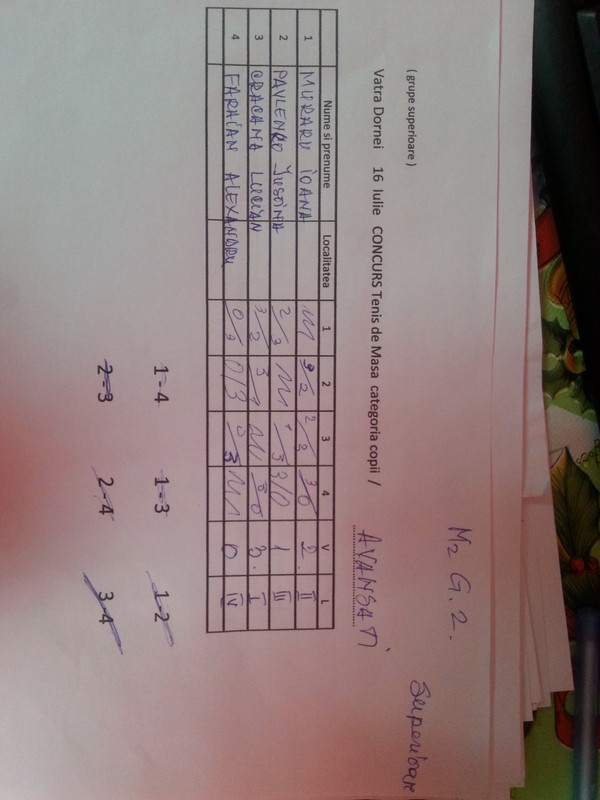 M2 G. 2. Superioare
( grupe superioare )
Vatra Dornei 16 Iulie CONCURS Tenis de Masa categoria copii / AVANSATI
Nume si prenume Localitatea 1 2 3 4 V L
1 MURARU IOANA 3/2 2/3 3/0 2. II
2 PAVLENCO 2/3 1/3 3/0 1 III
3 CRACANA LUCIAN 3/2 3/1 3/0 3. I
4 FARAIAN ALEXANDRU 0/3 0/3 0/3 0 IV
1-4 1-3 1-2
2-3 2-4 3-4